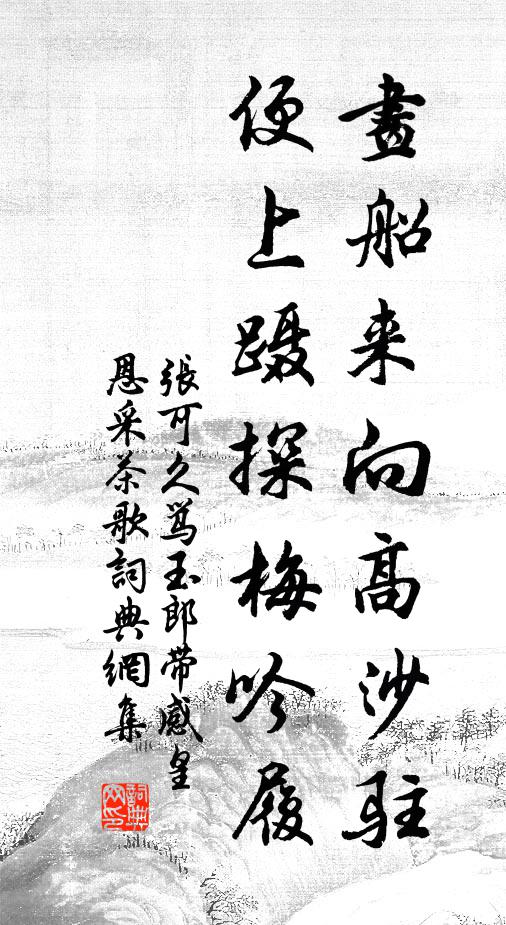 畫船来向高沙駐
便上蹑探梅吟履
張可久罵玉郎带感皇
恩采茶歌詞典網集
詞典网印